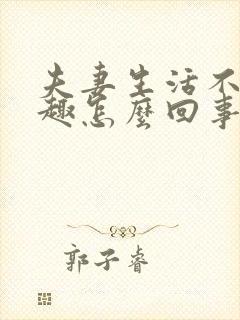 夫妻生活不
趣怎麼回事
郭子睿